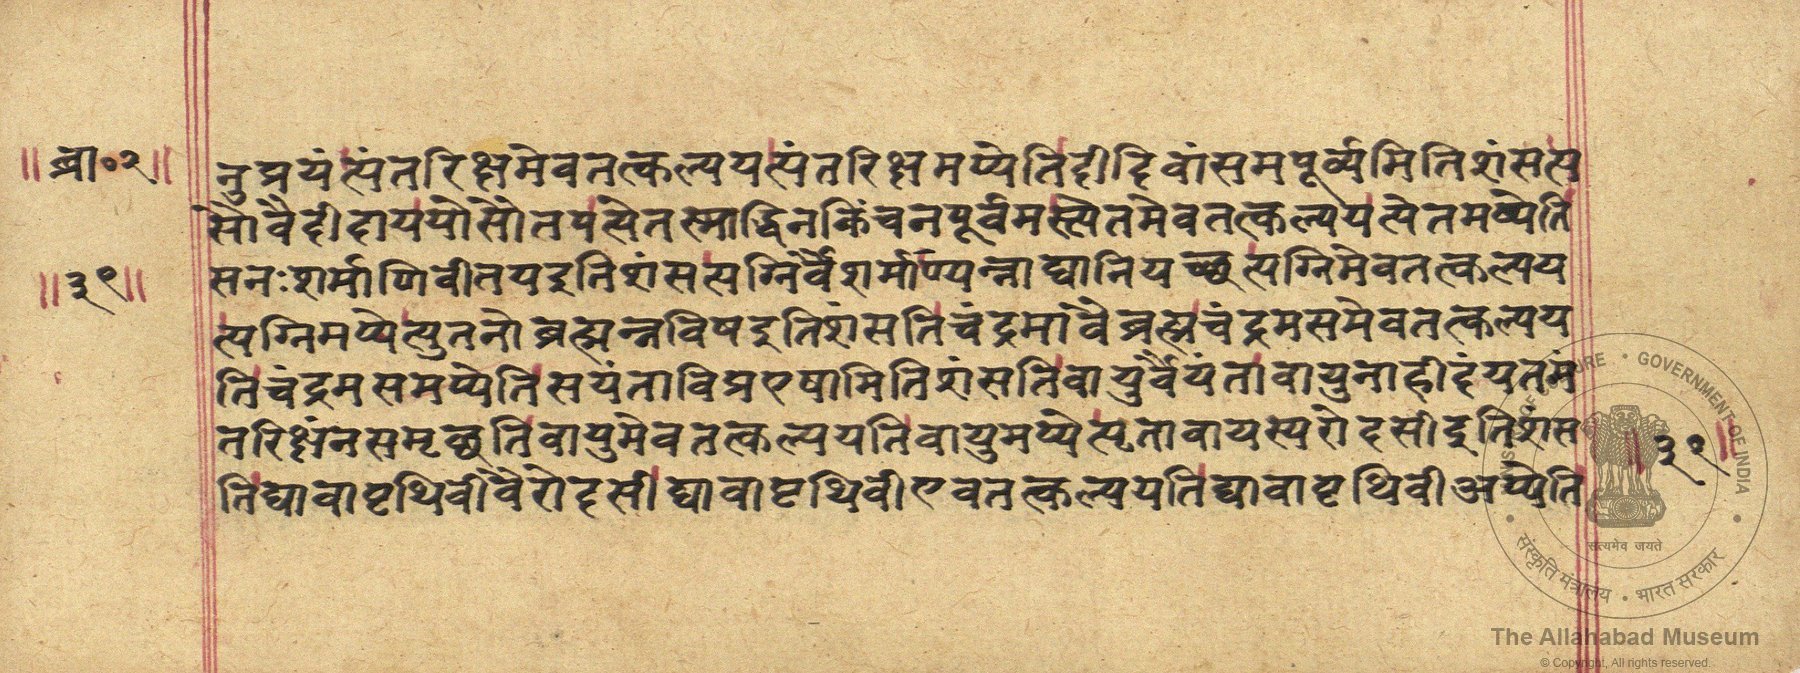 ॥ब्रा॰२॥
नुप्रयंत्यंतरिक्षमेवतत्कल्पयत्यंतरिक्षमप्येतिदीदिवांसमपूर्व्यमितिशंसत्य
सौवैदीदाययोसौतपत्येतस्माद्धिनकिंचनपूर्वमस्त्येतमेवतत्कल्पयत्येतमप्येति
॥३९॥
सनःशर्माणिवीतयइतिशंसत्यग्निर्वैशर्माण्यन्नाद्यानियच्छत्यग्निमेवतत्कल्पय
त्यग्निमप्येत्युतनोब्रह्मन्नविषइतिशंसतिचंद्रमावैब्रह्मचंद्रमसमेवतत्कल्पय
तिचंद्रमसमप्येतिसयंताविप्रएषामितिशंसतिवायुर्वैयंतावायुनाहीदंयतमं
तरिक्षंनसमृच्छतिवायुमेवतत्कल्पयतिवायुमप्येत्यृतावायस्यरोदसीइतिशंस
॥३९॥
तिद्यावापृथिवीवैरोदसीद्यावापृथिवीएवतत्कल्पयतिद्यावापृथिवीअप्येति
MINISTRY OF CULTURE • GOVERNMENT OF INDIA
सत्यमेव जयते
संस्कृति मंत्रालय • भारत सरकार
The Allahabad Museum
© Copyright, All rights reserved.